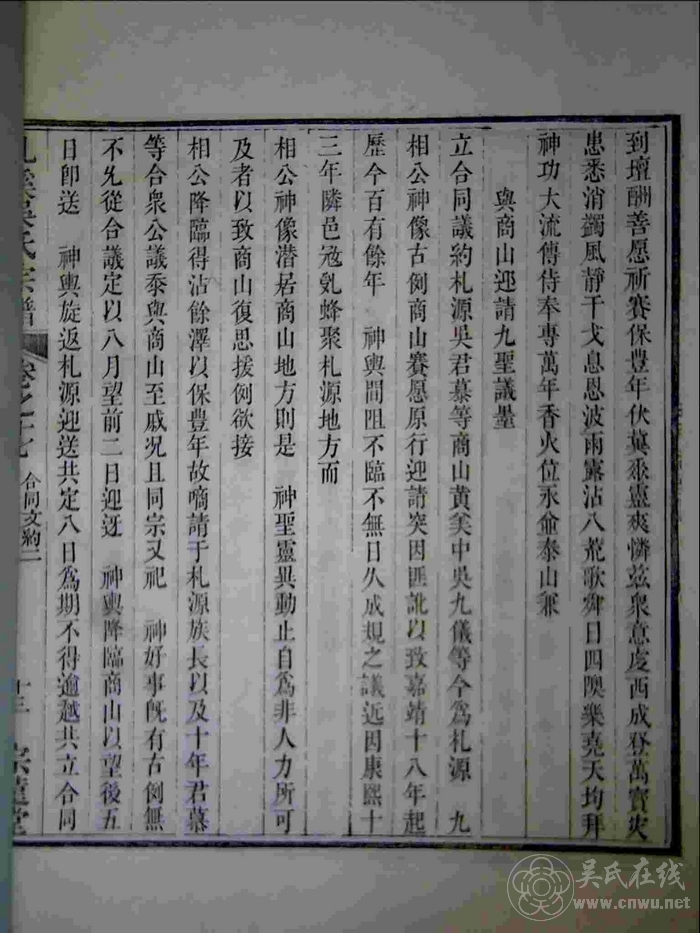 到壇酬善愿祈賽保豊年伏冀烝靈爽憐玆衆意虔西成登萬寳灾
患悉消蠲風靜干戈息恩波雨露沾八荒歌舜日四隩樂堯天均拜
神功大流傳侍奉專萬年香火位永僉泰山兼
與商山迎請九聖議墨
立合同議約札源吳君慕等商山黄美中吳九儀等今爲札源 九
相公神像古例商山賽愿原行迎請突因匪訛以致嘉靖十八年起
歷今百有餘年 神輿間阻不臨不無日久成規之議近因康熙十
三年隣邑宼乱蜂聚札源地方而
相公神像潜居商山地方則是 神聖靈異動止自爲非人力所可
及者以致商山復思援例欲接
相公降臨得沾餘澤以保豊年故啇請于札源族長以及十年君慕
等合衆公議忝與商山至戚况且同宗又祀 神好事旣有古例無
不先從合議定以八月望前二日迎迓 神輿降臨商山以望後五
日卽送 神輿旋返札源迎送共定八日爲期不得逾越共立合同
氏宗譜 卷之十七 合同文約二 十三
吴氏在线
www.cnwu.net